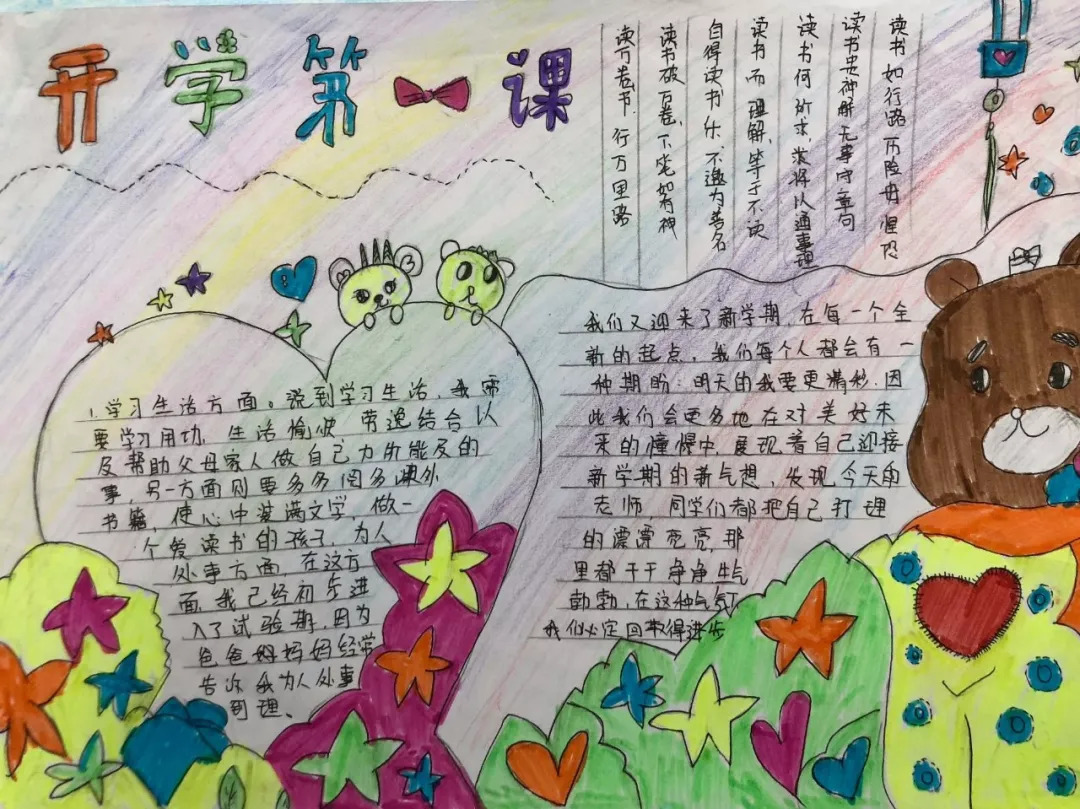 开学第一课
读书如行路 历险毋惶恐
读书贵神解 无事守章句
读书何所求 求将以通事理
读书而理解,等于不读
自得读书乐,不邀为善名
读书破万卷、下笔如有神
读万卷书 行万里路
1.学习生活方面。说到学习生活,我需
要学习用功,生活愉快 劳逸结合以
及帮助父母家人做自己力所能及的
事,另一方面则要多多阅多课外
书籍,使心中装满文学,做一
个爱读书的孩子,为人
处事方面 在这方
面,我已经初步进
入了试验期,因为
爸爸妈妈妈经常
告诉我为人处事
到理、
我们又迎来了新学期,在每一个全
新的起点,我们每个人都会有一
种期盼:明天的我要更精彩,因
此我们会更多地在对美好未
来的憧憬中,展现着自己迎接
新学期的新气想,发现今天的
老师,同学们都把自己打理
的漂漂亮亮,那
里都干干净净生气
勃勃,在这种气氛
我们必定回取得进步